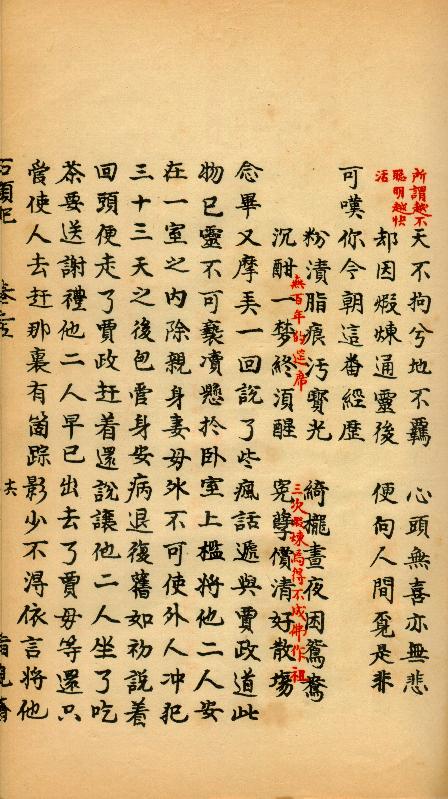 所謂越不
聰明越快
活
天不拘兮地不羈 心頭無喜亦無悲
却因煆煉通靈後 便向人間覔是非
可嘆你今朝這番經歷
粉漬脂痕汚寳光 綺櫳晝夜因鴛鴦
無百年的筵席
沉酣一梦終湏醒 寃孽償清好散塲
三次煅煉焉得不成佛作祖
念畢又摩弄一回說了些瘋話遞與賈政道此
物已靈不可褻凟懸於卧室上檻將他二人安
在一室之内除親身妻母外不可使外人冲犯
三十三天之後包管身安病退復舊如初說着
回頭便走了賈政赶着還說讓他二人坐了吃
茶要送謝禮他二人早已出去了賈母等還只
管使人去赶那裏有箇踪影少不淂依言將他
石頭記